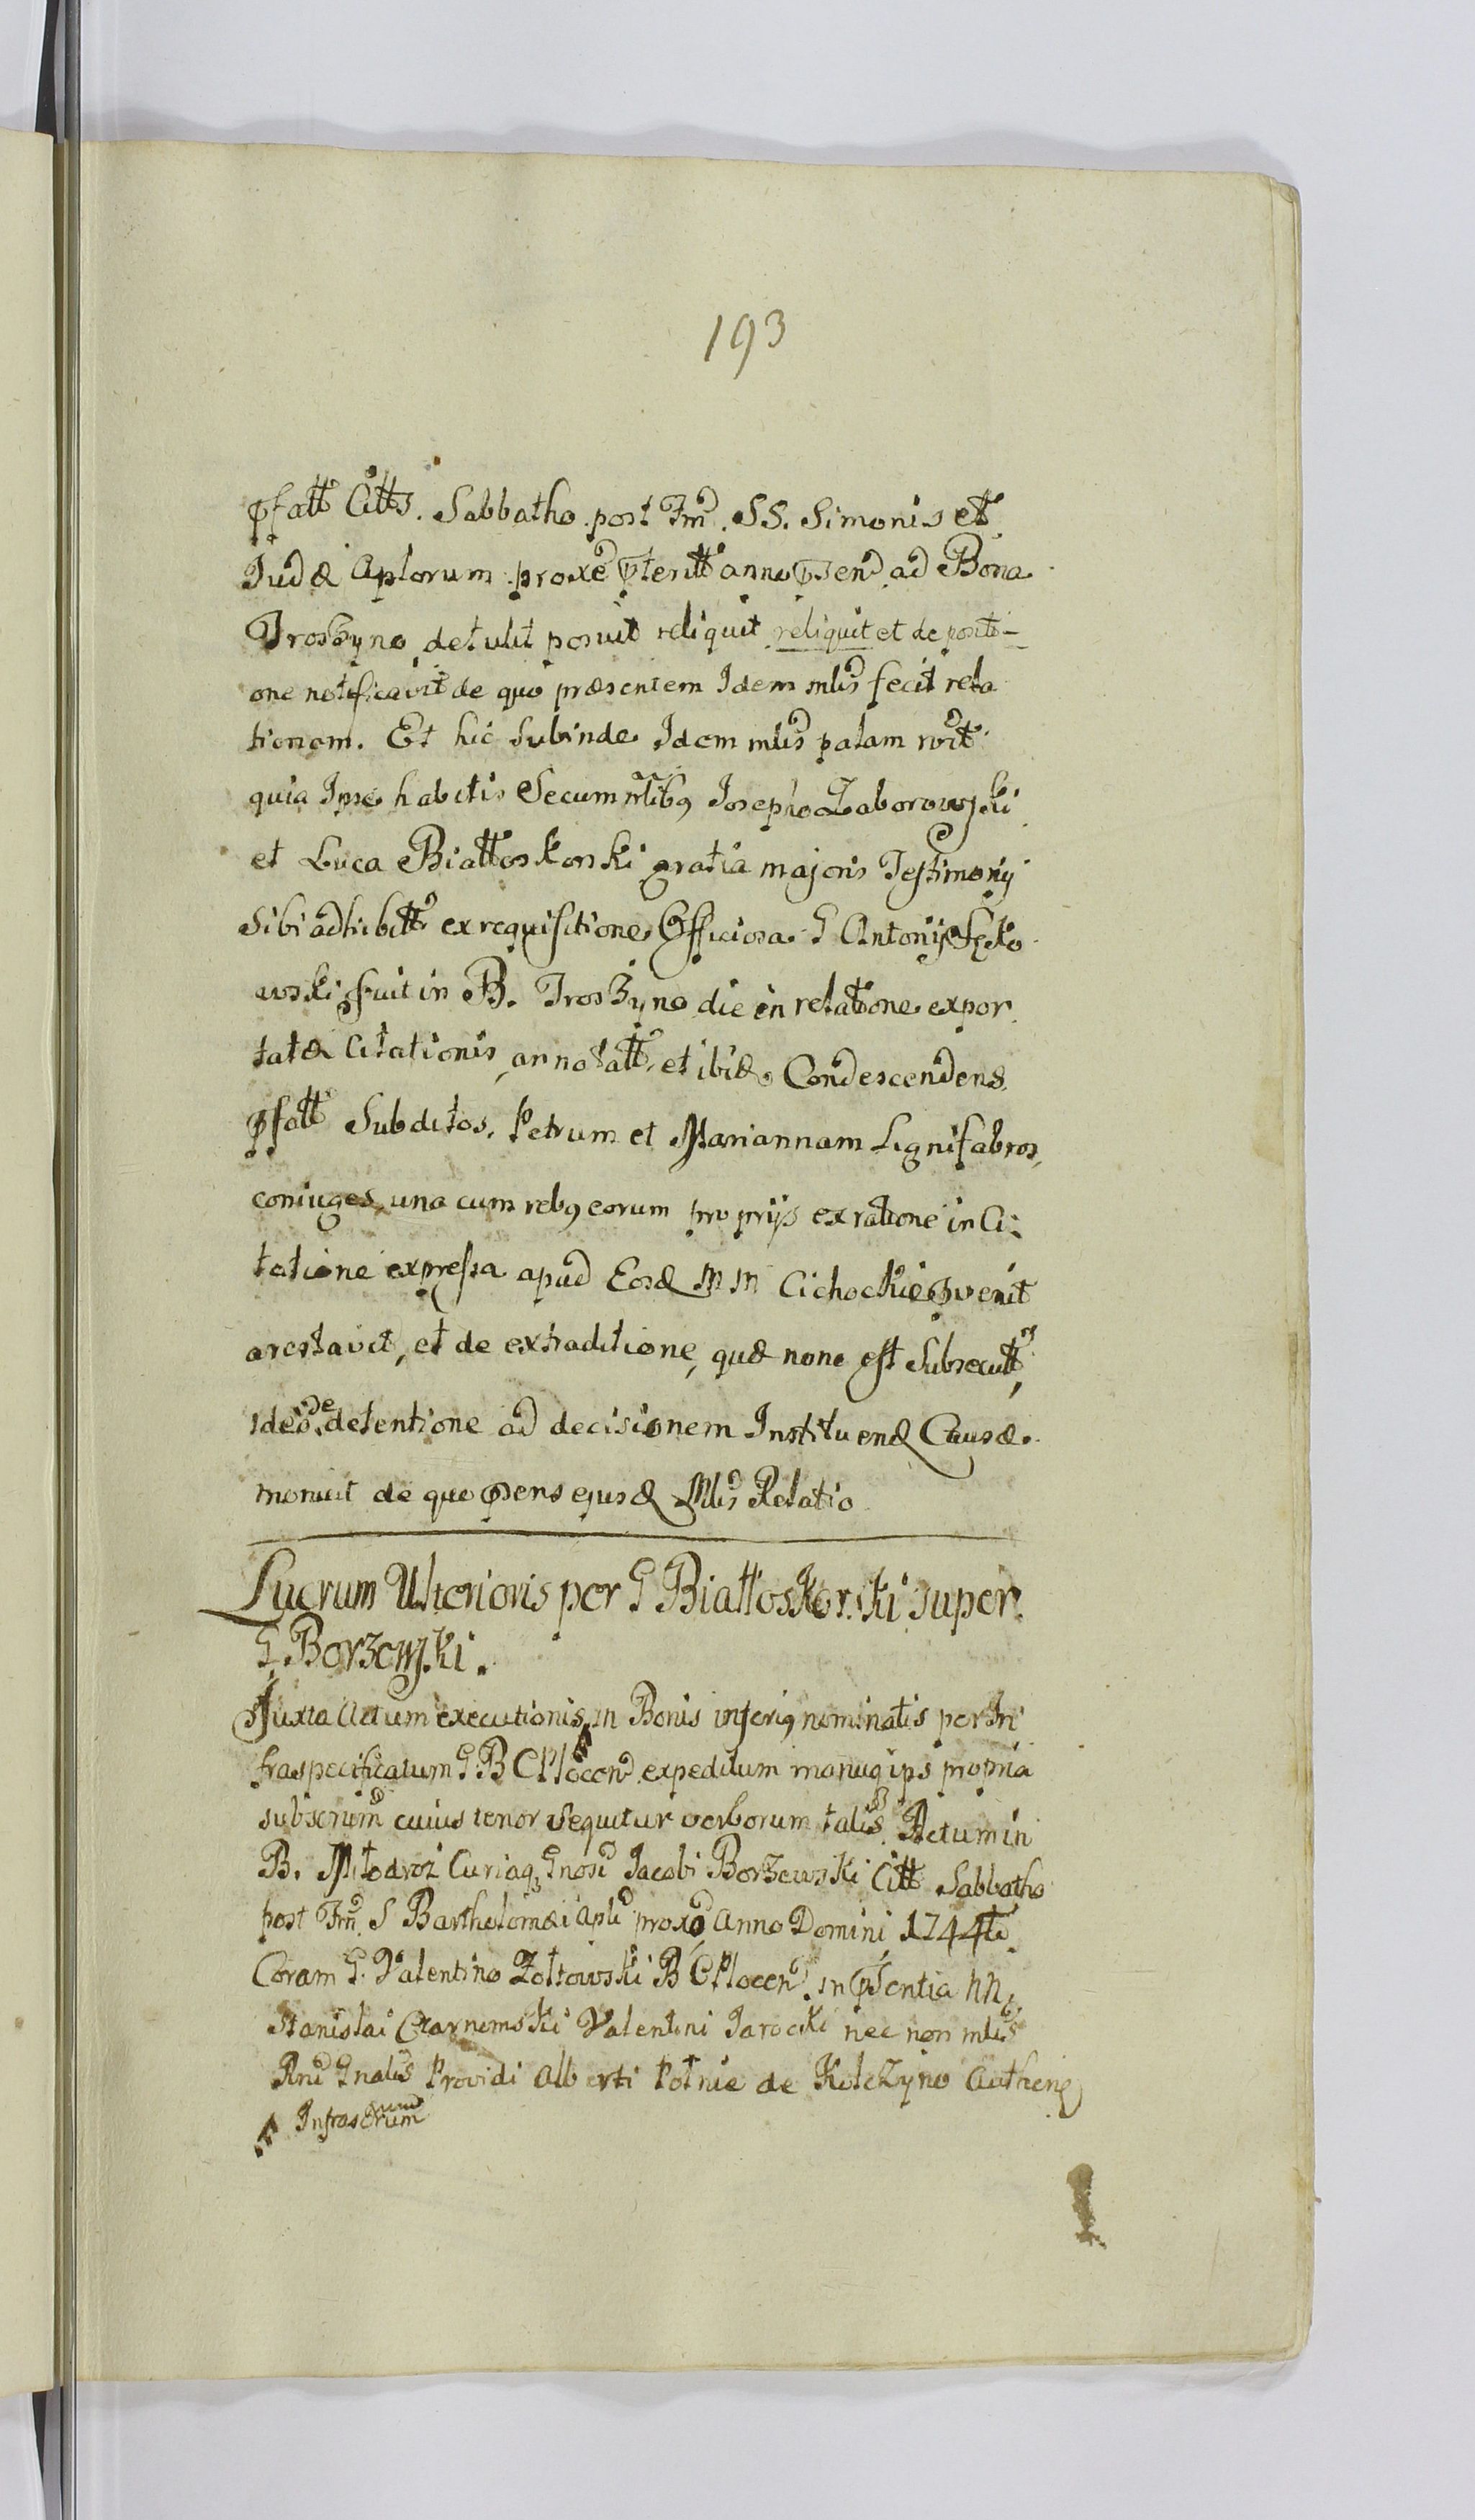 193
Pfatt Citts. Sabbatho post Fm. SS. Simonis et
Judæ Aplorum proxe pteritt anno psen ad Bona
Troszyno detulit posuit reliquit reliquit et de positi-
one notificavit de quo præsentem Idem mlis fecit rela
tionem. Et hic subinde Idem mlis palam rvit
quia Ipse habitis secum nlibg Josepho Zaborowski
et Luca Biattoskorski gratia majoris Testimonij
sibi adhibitt ex requisitione Officiosa G Antonij
wski fuit in B. Troszyno die in relatione expor
tatæ Citationis annotatt et ibidæ Condescendens
pfatt Subditos Petrum et Mariannam Lignifabros
coniuges una cum rebg eorum proprijs ex ratione in Ci:
tatione expressa apud Eosd MM Cichockie pvenit
arestavit, et de extraditione, quæ none est subsecutt,
ideo de detentione ad decisionem Instituend Causæ
monuit de quo psens ejusd Mlis Relatio
Lucrum Ulterioris per G Biattoskorski super
G. Borzewski.
Juxta Actum executionis in Bonis inferig nominatis per In
fraspecificatum G. B C Plocen expeditum manug ips propria
subscrum cuius tenor sequitur verborum talis Actum in
B. Młodroż Curiaq Gnosi Jacobi Borzewski Citt Sabbatho
post Fm S Bartholomæi Apli proxo Anno Domini 1744to
Coram G. Valentino Zołtowski B C Plocen in psentia NN
Stanislai Czarnomski Valentini Jarocki nec non mlis
Rni Gnalis Providi Alberti Potnie de Kolczyno Authen
Infrascrum